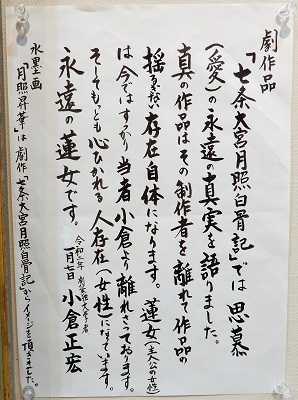 劇作品
「七条大宮月照白骨記」では思慕
(愛)の永遠の真実を語りました。
真の作品はその制作者を離れて作品の
揺るぎない存在自体になります。蓮女(主人公の女性)
は今ではすっかり当者小倉より離れさっております。
そしてもっとも心ひかれる人存在(女性)になっています。
永遠の蓮女です。
令和二年
一月七日 小倉正宏
水墨画
「月照昇華」は劇作「七条大宮月照白骨記」からイメージを頂きました。